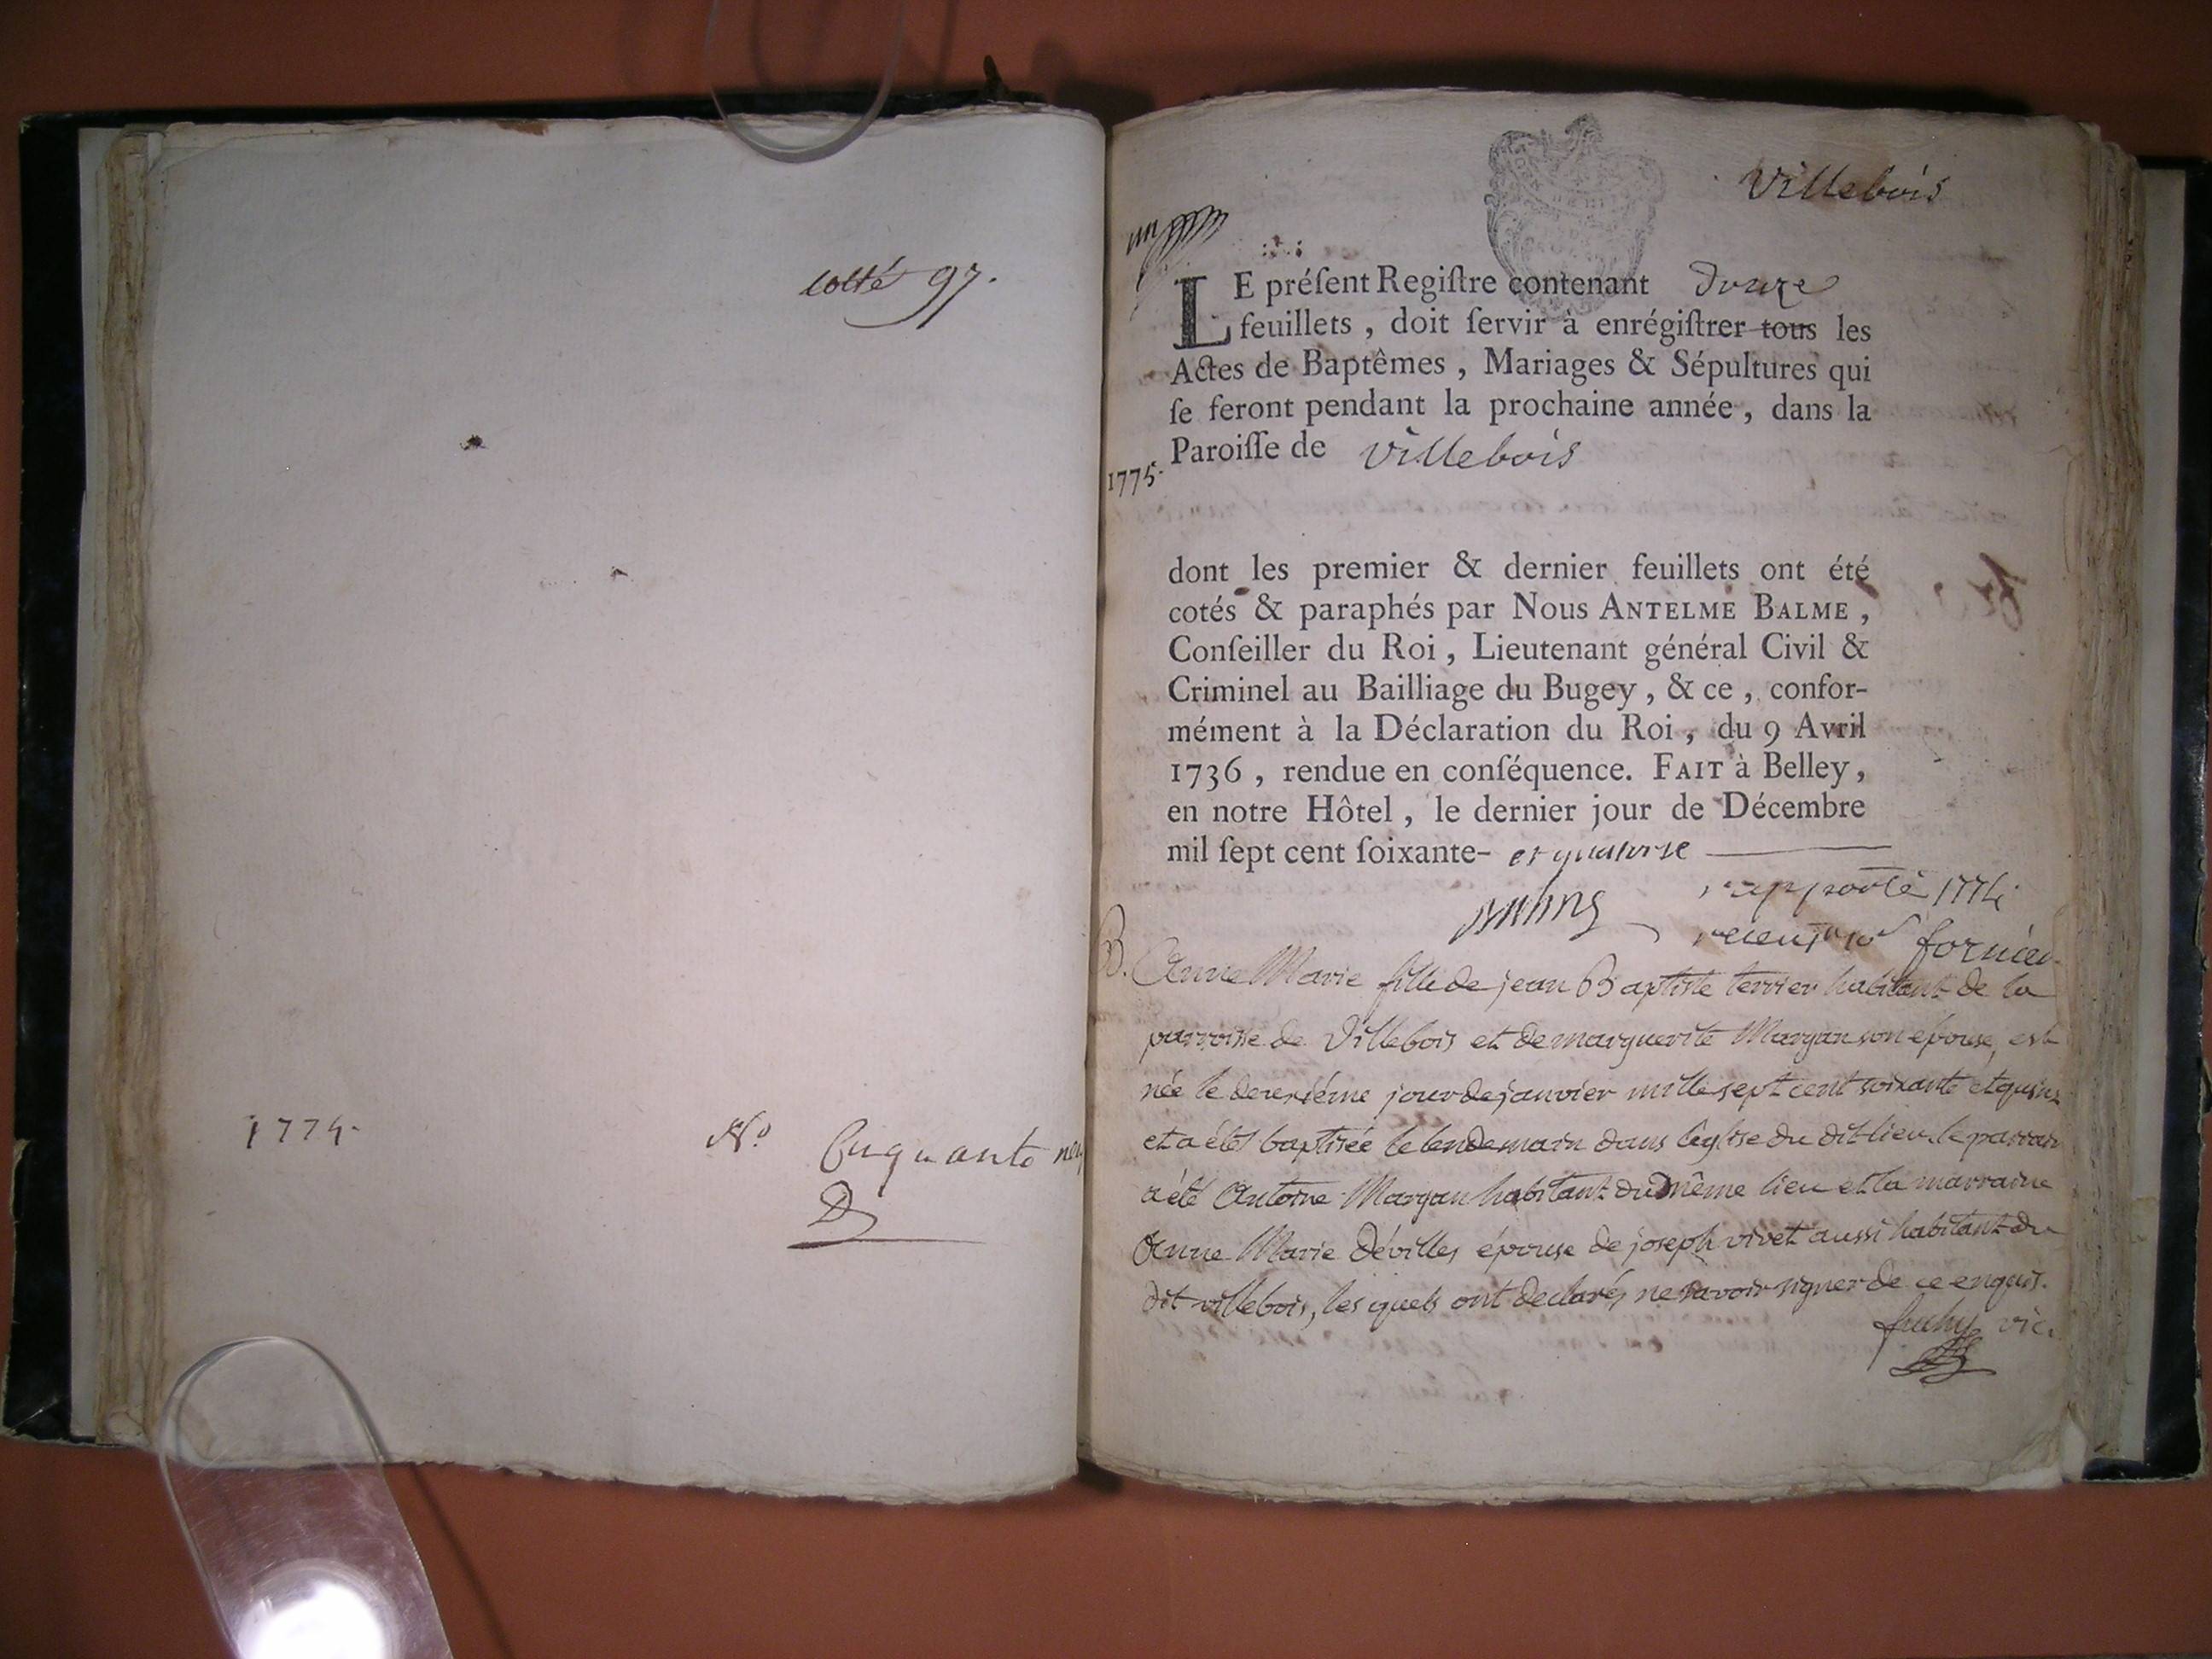 cotté 97.
1774.
N.º Cinquante neuf
Villebois
un
LE préſent Regiſtre contenant Douze
feuillets, doit ſervir à enrégiſtrer tous les
Actes de Baptêmes, Mariages & Sépultures qui
ſe feront pendant la prochaine année, dans la
Paroiſſe de Villebois
1775.
dont les premier & dernier feuillets ont été
cotés & paraphés par Nous ANTELME BALME,
Conſeiller du Roi, Lieutenant général Civil &
Criminel au Bailliage du Bugey, & ce, confor-
mément à la Déclaration du Roi, du 9 Avril
1736, rendue en conſéquence. FAIT à Belley,
en notre Hôtel, le dernier jour de Décembre
mil ſept cent ſoixante- et quatorse
rapporté 1774
fornier
B. Anne Marie fille de jean Baptiste terrier habitant de la
parroisse de Villebois et de marguerite Margan son epouse, est
née le deuxiéme jour de janvier mille sept cent soixante et quinz
et a étés baptisée le lendemain dans l'église du dit lieu le parrain
a été Antoine Margan habitant du même lieu et la marraine
Anne Marie Dévilles épouse de joseph vivet aussi habitant du
dit villebois, les quels ont declarés ne savoir signer de ce enquis.
vic.